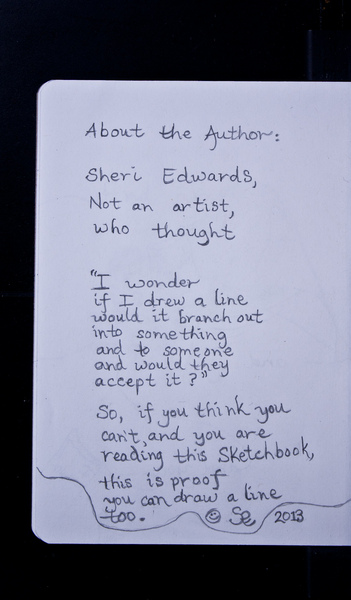 About the Author:
Sheri Edwards,
Not an artist,
who thought
"I wonder
if I drew a line
would it branch out
into something
and to someone
and would they
accept it?"
So, if you think you
can't, and you are
reading this Sketchbook,
this is proof
you can draw a line
too. ☺ SE 2013